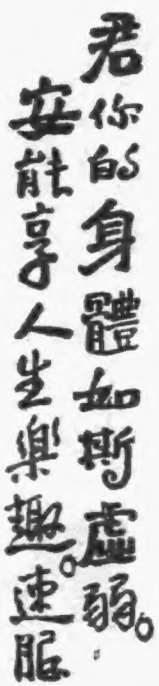 君你的身體如斯虛弱。
安能享人生樂趣。速服